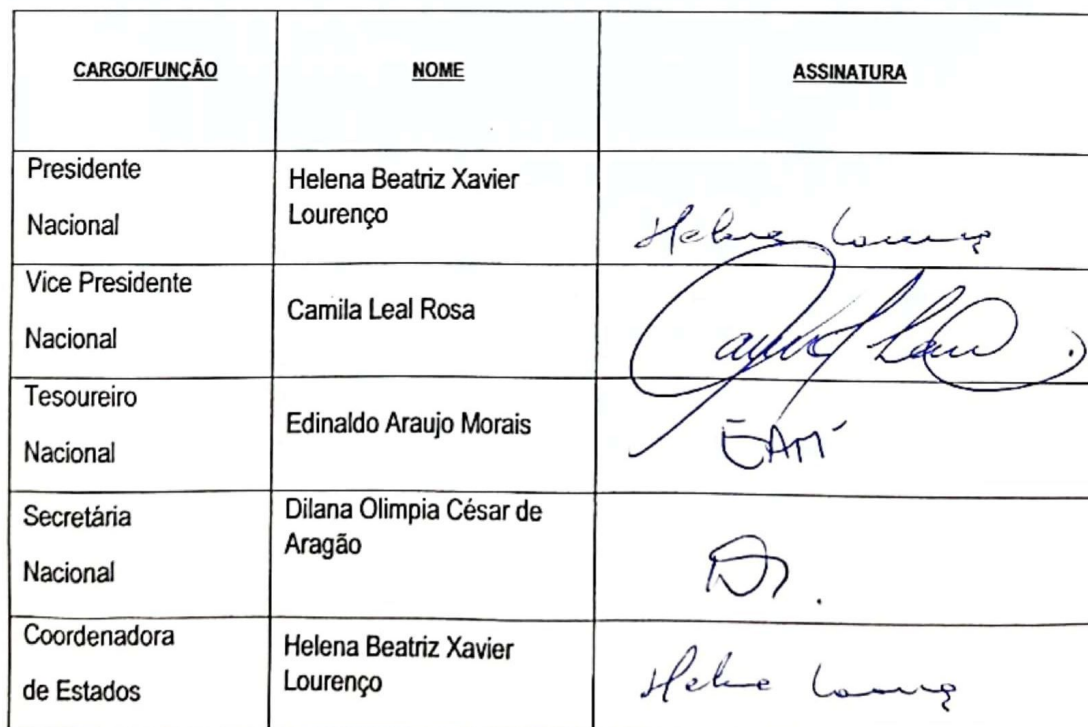 CARGO/FUNÇÃO NOME ASSINATURA
Presidente
Nacional
Helena Beatriz Xavier
Lourenço
Helena Lourenço
Vice Presidente
Nacional
Camila Leal Rosa
Tesoureiro
Nacional
Edinaldo Araujo Morais
EAM
Secretária
Nacional
Dilana Olimpia César de
Aragão
Coordenadora
de Estados
Helena Beatriz Xavier
Lourenço
Helena Lourenço